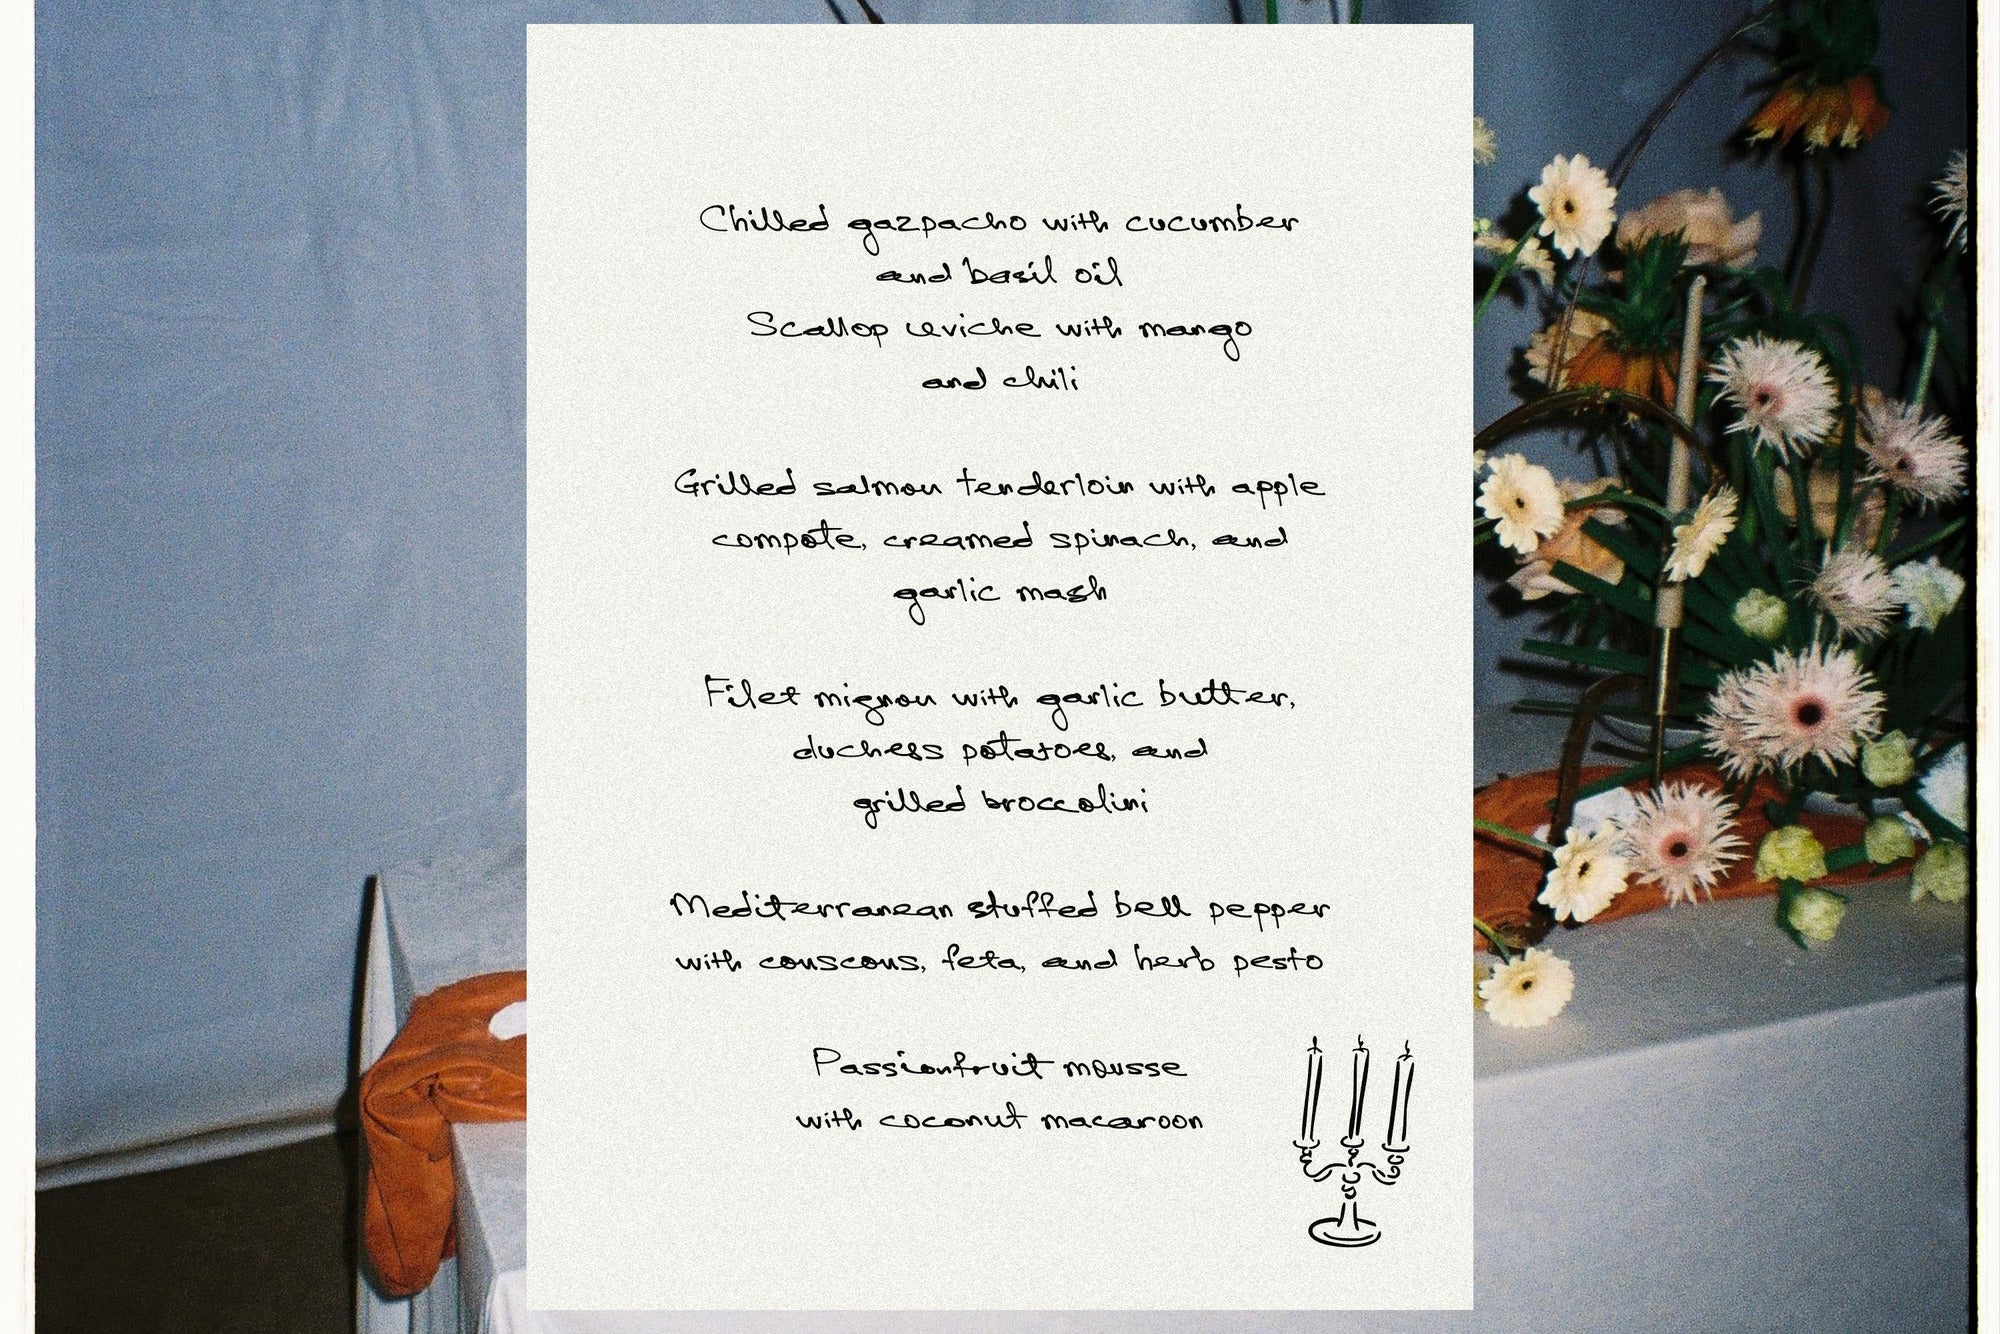 Chilled gazpacho with cucumber
and basil oil
Scallop ceviche with mango
and chili
Grilled salmon tenderloin with apple
compote, creamed spinach, and
garlic mash
Filet mignon with garlic butter,
duchess potatoes, and
grilled broccolini
Mediterranean stuffed bell pepper
with couscous, feta, and herb pesto
Passionfruit mousse
with coconut macaroon